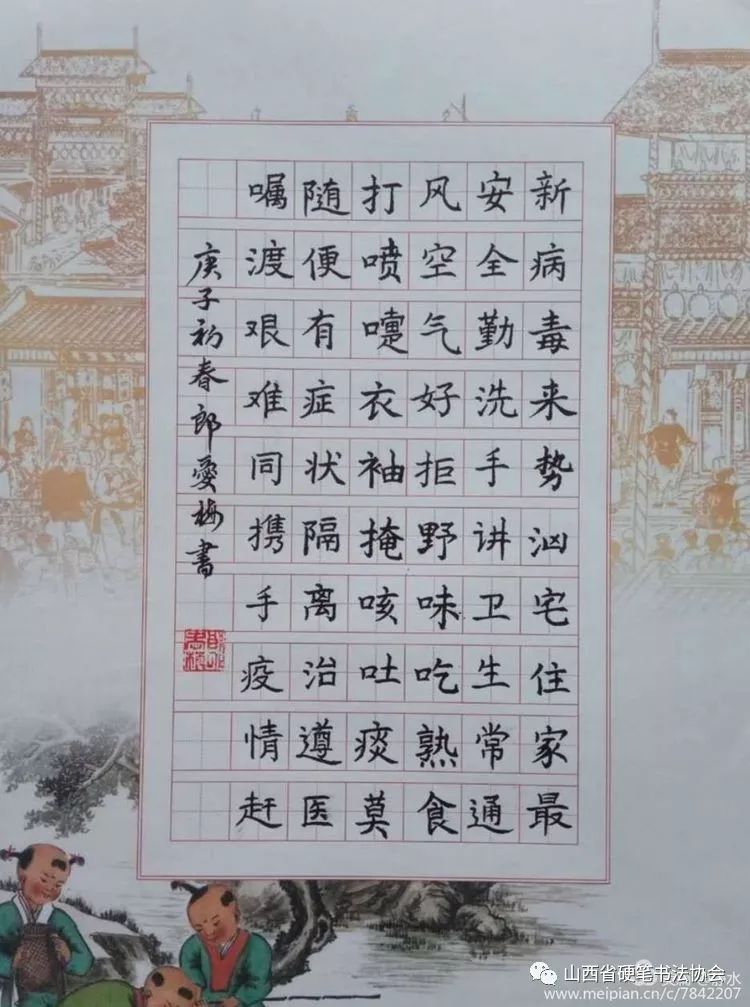 新病毒来势汹宅住家最
安全勤洗手讲卫生常通
风空气好拒野味吃熟食
打喷嚏衣袖掩咳吐痰莫
随便有症状隔离治遵医
嘱渡艰难同携手疫情赶
庚子初春郎爱梅書
山西省硬笔书法协会
www.meipian.cn/c/7842207